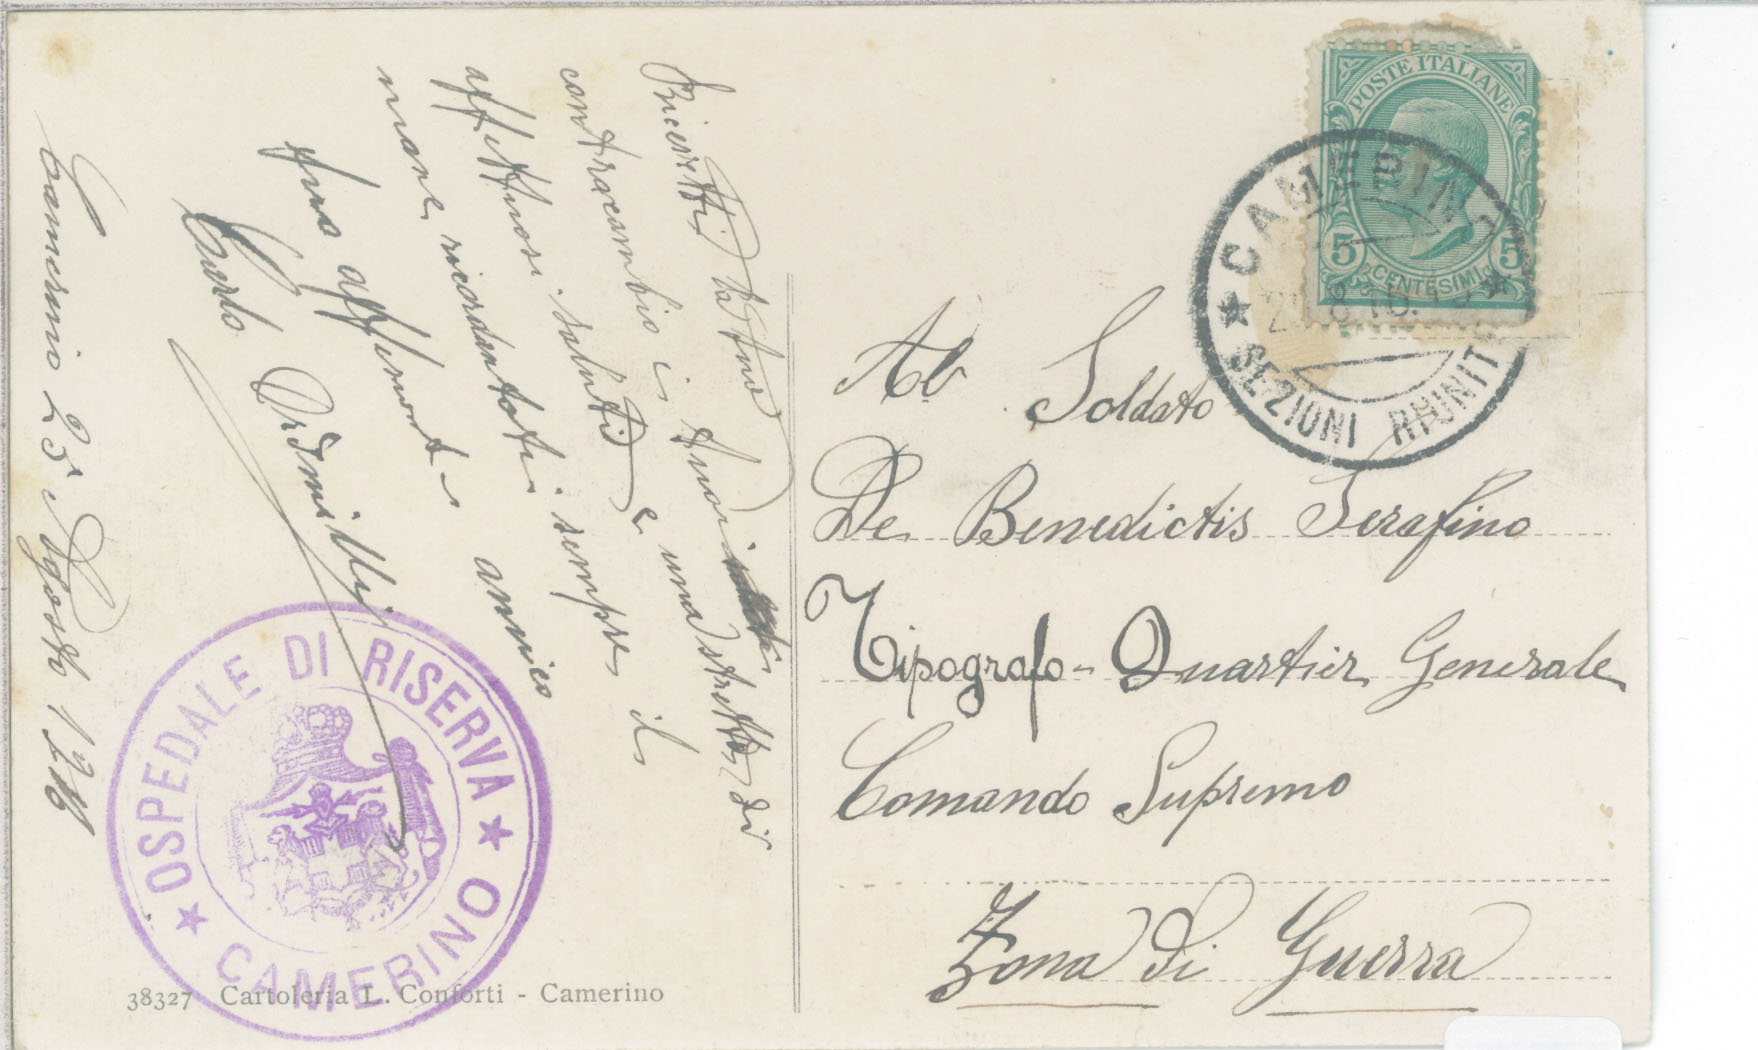 Camerino 25 Agosto 1916
Ricevetti la tua
contraccambio i tuoi
affettuosi saluti e una stretta di
mano ricordantoti sempre il
tuo aff.mo amico
Carlo Ordmilli
POSTE ITALIANE
5 5
CENTESIMI
CAMERINO
SEZIONI RIUNITE
Al Soldato
De Benedictis Serafino
Tipografo - Quartier Generale
Comando Supremo
Zona di Guerra
OSPEDALE DI RISERVA
CAMERINO
38327 Cartoleria L. Conforti - Camerino